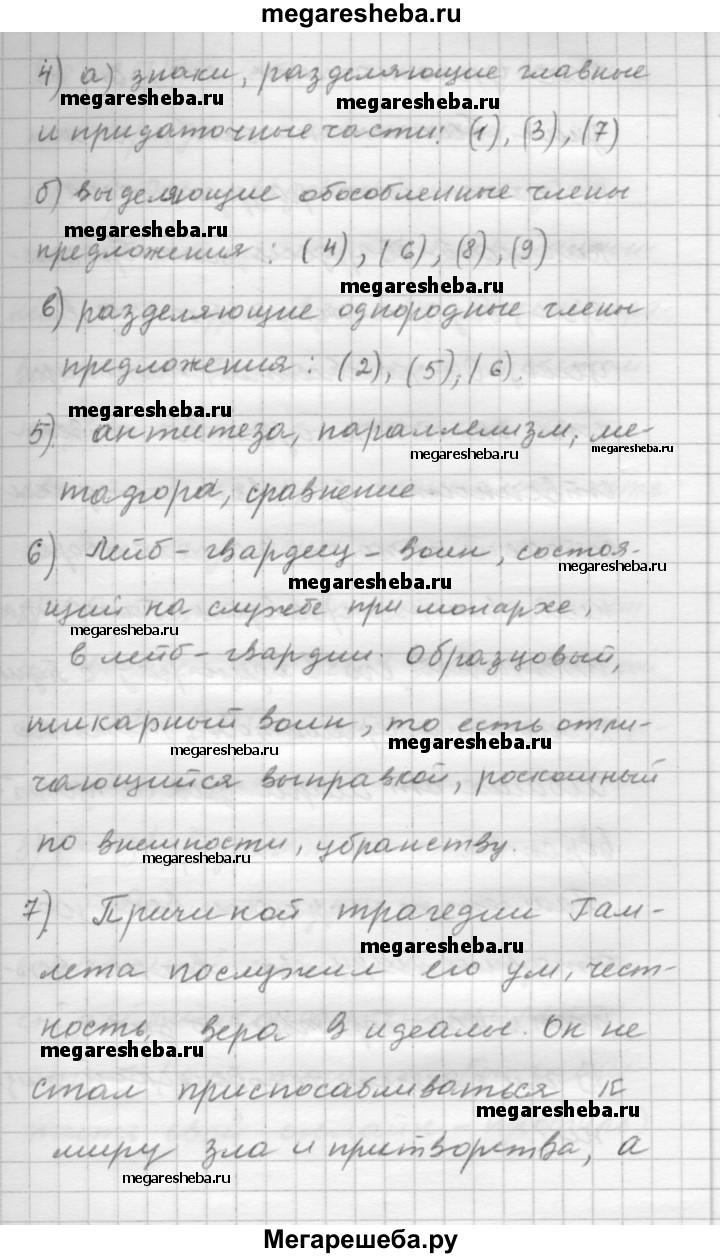 megaresheba.ru
4) а) знаки, разделяющие главные
megaresheba.ru megaresheba.ru
и придаточные части: (1), (3), (7)
б) выделяющие обособленные члены
megaresheba.ru
предложения: (4), (6), (8), (9)
megaresheba.ru
в) разделяющие однородные члены
предложения: (2), (5), (6).
megaresheba.ru
5) антитеза, параллелизм, ме-
megaresheba.ru megaresheba.ru
тафора, сравнение.
6) Лейб-гвардеец - воин, состоя-
megaresheba.ru megaresheba.ru
щий на службе при монархе,
megaresheba.ru
в лейб-гвардии. Образцовый,
шикарный воин, то есть отли-
megaresheba.ru megaresheba.ru
чающийся выправкой, роскошный
по внешности, убранству.
megaresheba.ru
7) Причиной трагедии Гам-
megaresheba.ru
лета послужил его ум, чест-
ность, вера в идеалы. Он не
megaresheba.ru
стал приспосабливаться к
megaresheba.ru
миру зла и притворства, а
megaresheba.ru
Мегарешеба.ру